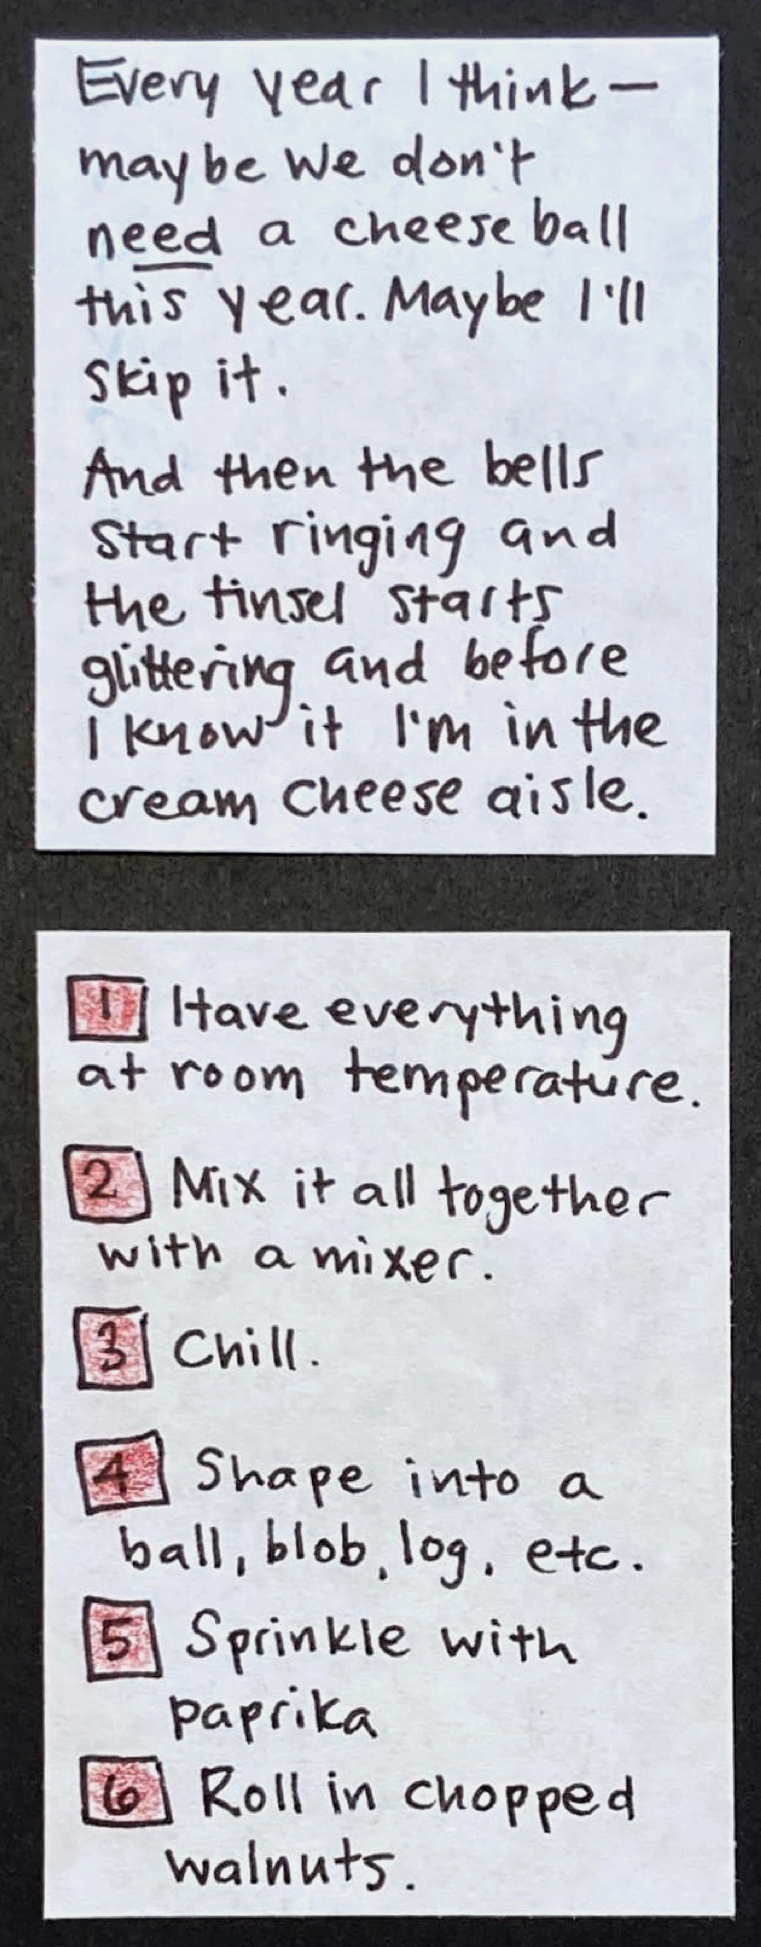 Every year I think —
maybe we don't
need a cheese ball
this year. Maybe I'll
skip it.
And then the bells
start ringing and
the tinsel starts
glittering and before
I know it I'm in the
cream cheese aisle.
1 Have everything
at room temperature.
2 Mix it all together
with a mixer.
3 Chill.
4 Shape into a
ball, blob, log, etc.
5 Sprinkle with
paprika
6 Roll in chopped
walnuts.